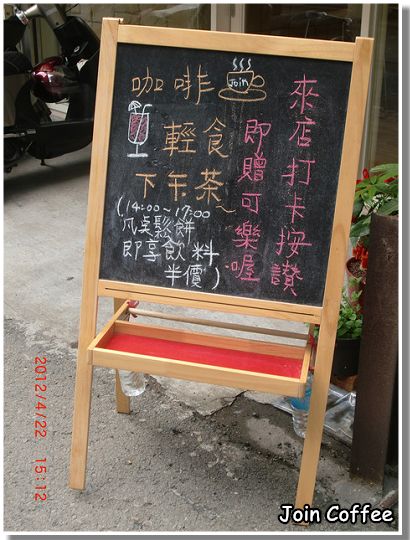 咖啡
Join
輕食
下午茶~
(14:00~17:00
凡点鬆餅
即享飲料
半價)
來店打卡按讚
即贈可樂喔
2012/4/22 15:12
Join Coffee